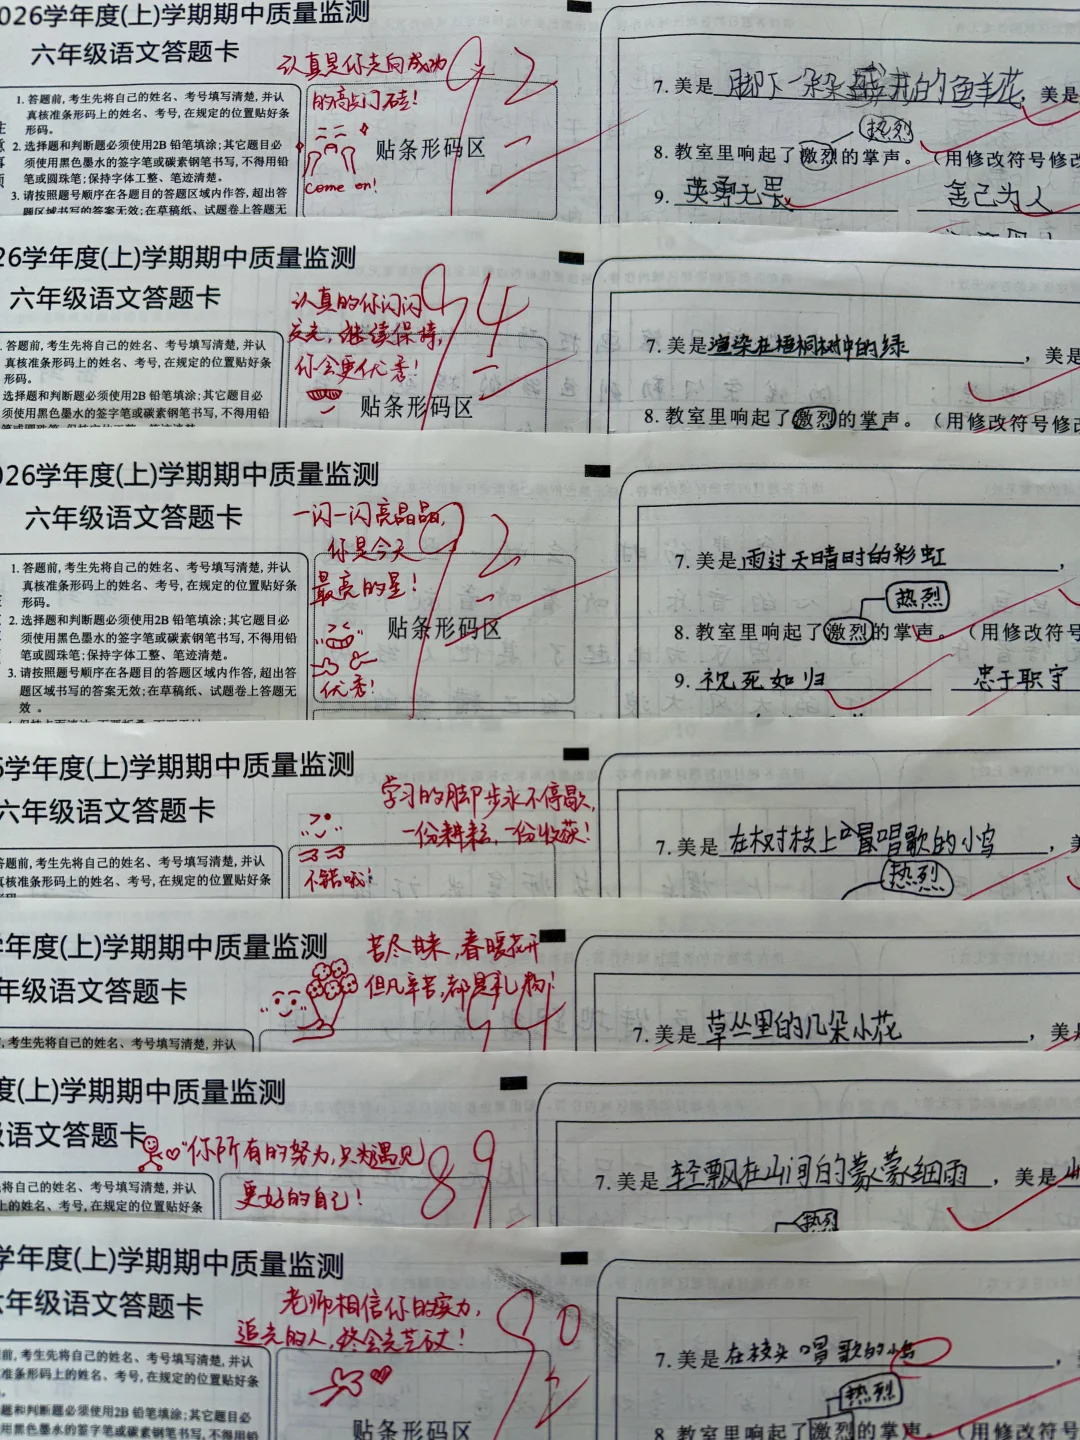 026学年度(上)学期期中质量监测
六年级语文答题卡
认真是你走向成功
的高占门砝!
92
come on!
贴条形码区
1. 答题前,考生先将自己的姓名、考号填写清楚,并认
真核准条形码上的姓名、考号,在规定的位置贴好条
形码。
2. 选择题和判断题必须使用2B 铅笔填涂;其它题目必
须使用黑色墨水的签字笔或碳素钢笔书写,不得用铅
笔或圆珠笔;保持字体工整、笔迹清楚。
3. 请按照题号顺序在各题目的答题区域内作答,超出答
题区域书写的答案无效;在草稿纸、试题卷上答题无
7. 美是 脚下一朵朵 的鱼羊花, 美是
热烈
8. 教室里响起了激烈的掌声。(用修改符号修改
9. 英勇无畏 舍己为人
26学年度(上)学期期中质量监测
六年级语文答题卡
认真的你闪闪
发光,继续保持,
你会更优秀!
94
贴条形码区
. 答题前,考生先将自己的姓名、考号填写清楚,并认
真核准条形码上的姓名、考号,在规定的位置贴好条
形码。
选择题和判断题必须使用2B 铅笔填涂;其它题目必
须使用黑色墨水的签字笔或碳素钢笔书写,不得用铅
7. 美是渲染在梧桐树中的绿, 美是
8. 教室里响起了激烈的掌声。(用修改符号修
026学年度(上)学期期中质量监测
六年级语文答题卡
一闪一闪亮晶晶,
你是今天
最亮的星!
92
优秀!
贴条形码区
1. 答题前,考生先将自己的姓名、考号填写清楚,并认
真核准条形码上的姓名、考号,在规定的位置贴好条
形码。
2. 选择题和判断题必须使用2B 铅笔填涂;其它题目必
须使用黑色墨水的签字笔或碳素钢笔书写,不得用铅
笔或圆珠笔;保持字体工整、笔迹清楚。
3. 请按照题号顺序在各题目的答题区域内作答,超出答
题区域书写的答案无效;在草稿纸、试题卷上答题无
效 。
7. 美是雨过天晴时的彩虹,
热烈
8. 教室里响起了激烈的掌声。(用修改符号
9. 视死如归 忠于职守
6学年度(上)学期期中质量监测
六年级语文答题卡
学习的脚步永不停歇,
一份耕耘,一份收获!
不错哦!
答题前,考生先将自己的姓名、考号填写清楚,并认
真核准条形码上的姓名、考号,在规定的位置贴好条
7. 美是在树枝上唱歌的小鸟, 美
热烈
学年度(上)学期期中质量监测
年级语文答题卡
苦尽甘来,春暖花开
但凡辛苦,都是礼物!
94
,考生先将自己的姓名、考号填写清楚,并认
7. 美是草丛里的几朵小花, 美
度(上)学期期中质量监测
级语文答题卡
你所有的努力,只为遇见
更好的自己!
89
将自己的姓名、考号填写清楚,并认
上的姓名、考号,在规定的位置贴好条
7. 美是轻飘在山间的蒙蒙细雨, 美是
热烈
学年度(上)学期期中质量监测
年级语文答题卡
老师相信你的实力,
追光的人,终会光芒万丈!
90
贴条形码区
前,考生先将自己的姓名、考号填写清楚,并认
准条形码上的姓名、考号,在规定的位置贴好条
题和判断题必须使用2B 铅笔填涂;其它题目必
用黑色墨水的签字笔或碳素钢笔书写,不得用铅
7. 美是在枝头唱歌的小鸟
热烈
8. 教室里响起了激烈的掌声。(用修改符号